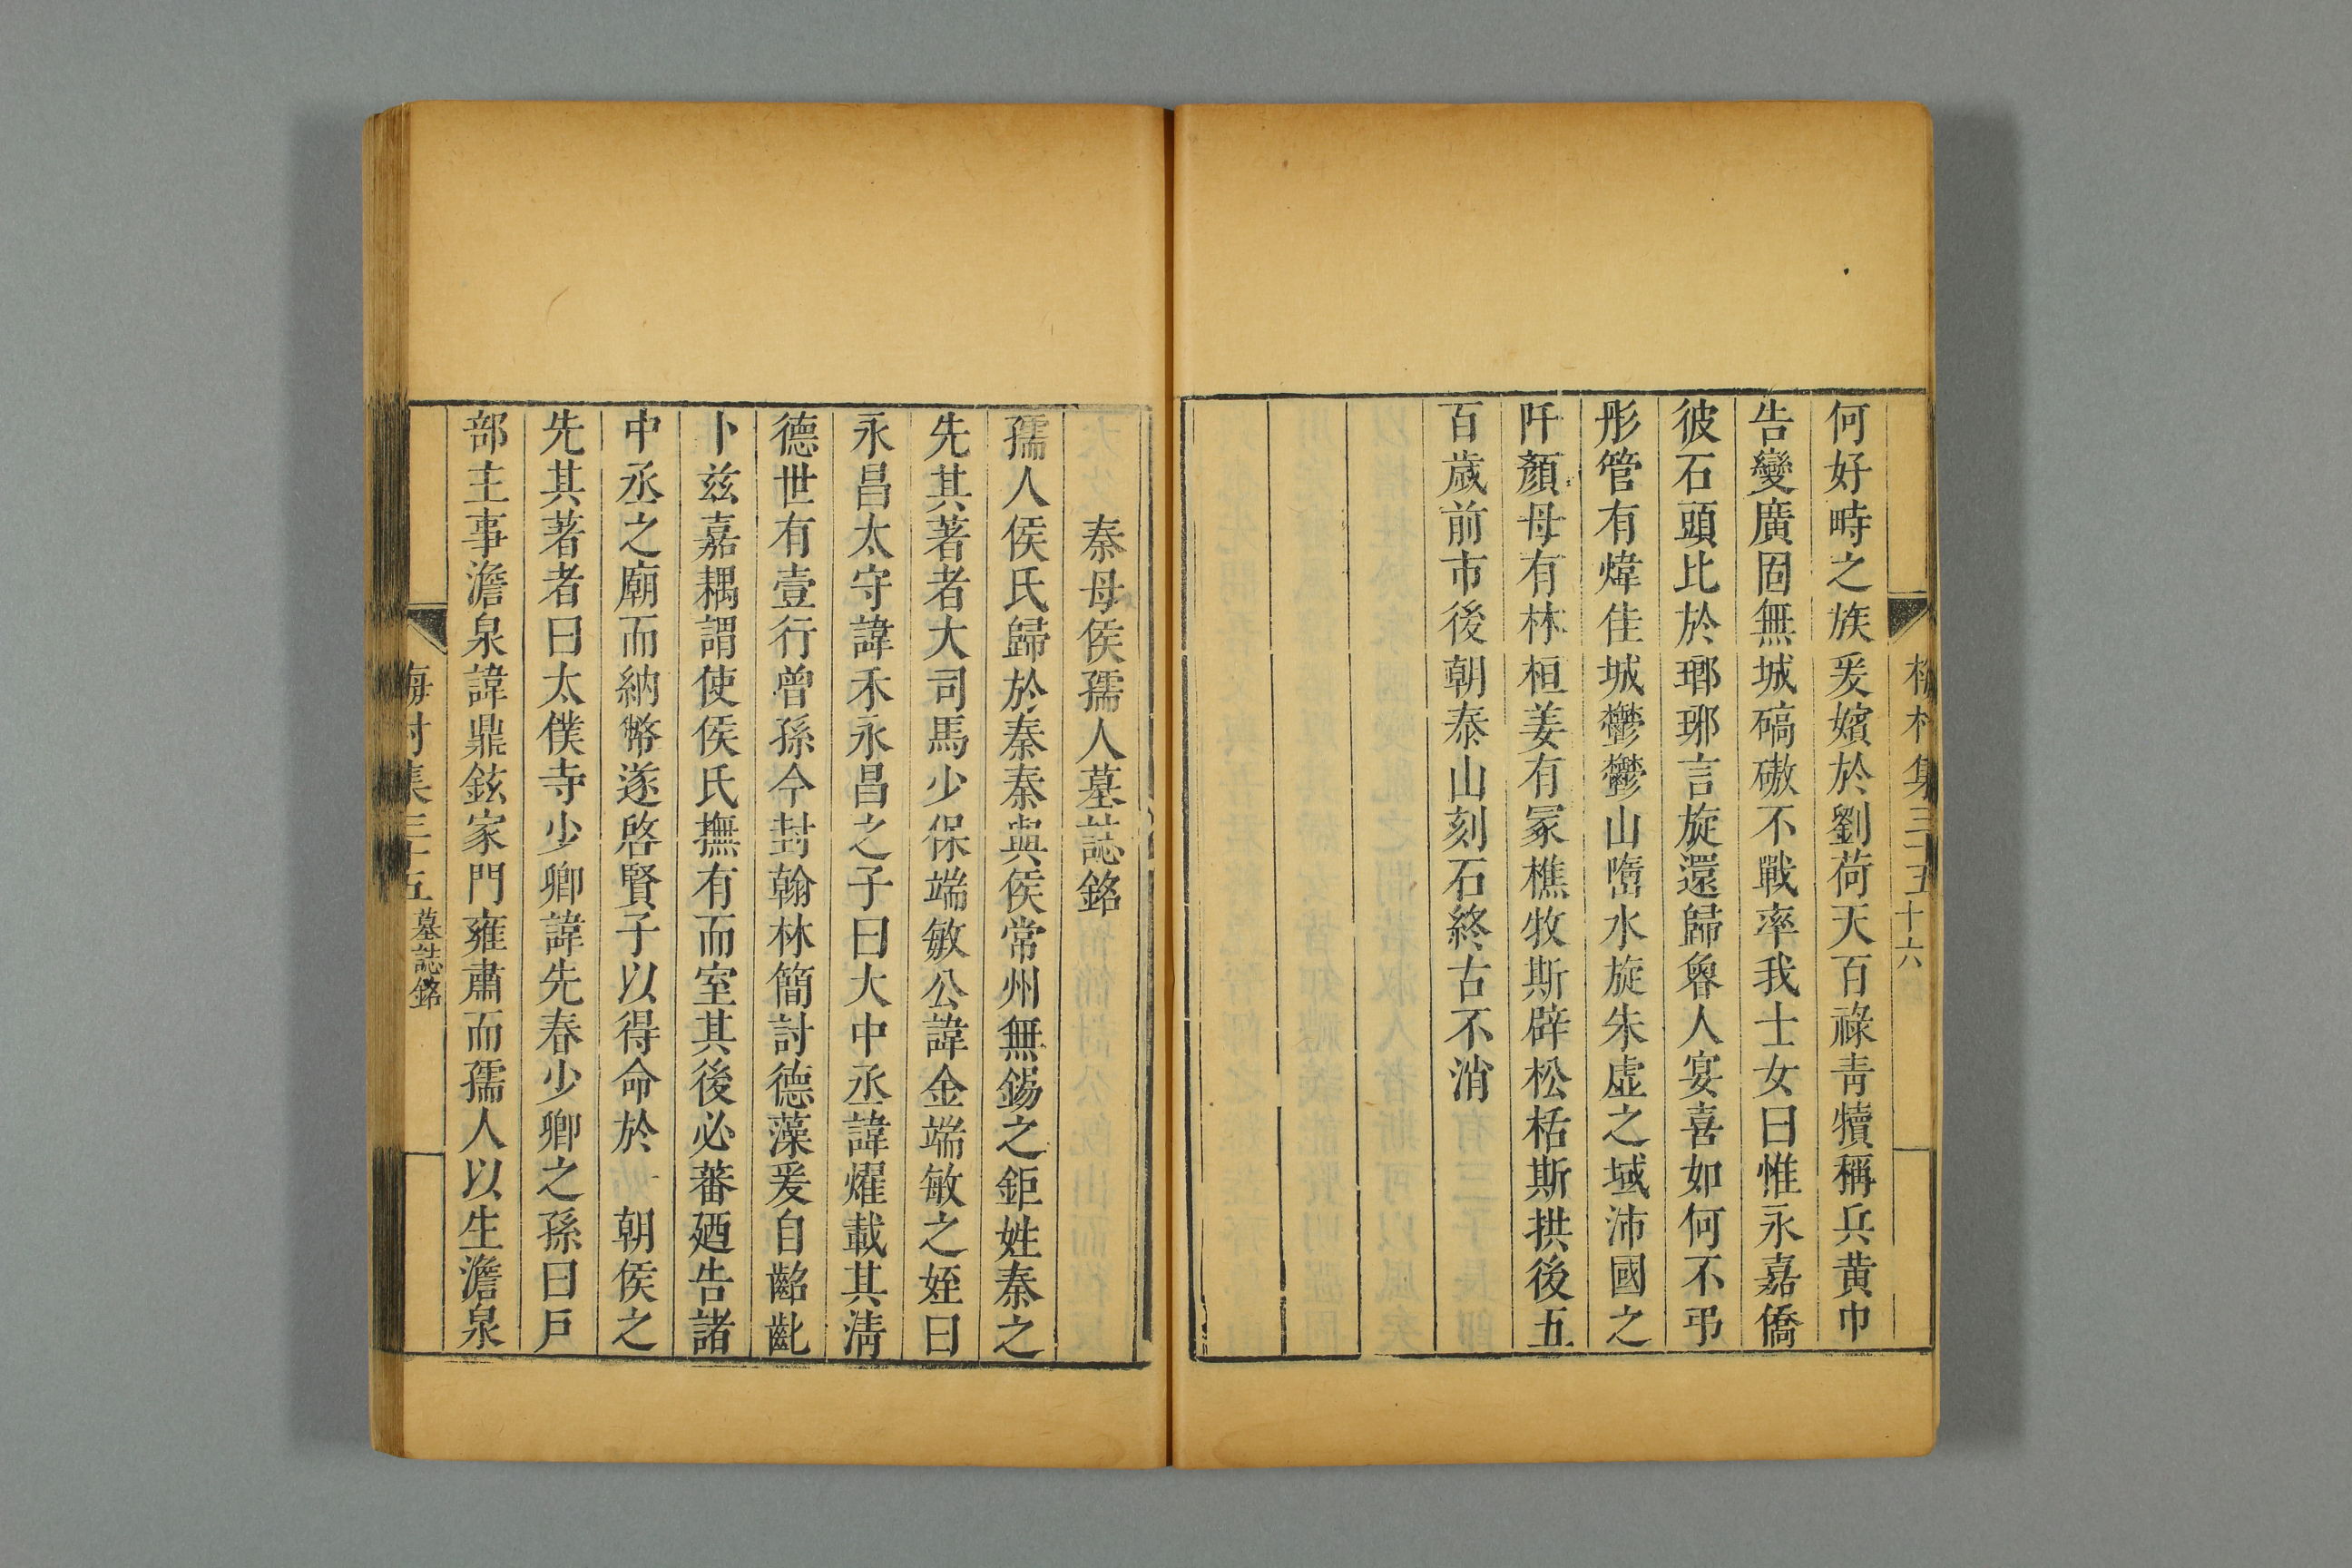 梅村集三十五 十六
何好時之族爰嬪於劉荷天百祿青犢稱兵黃巾
告變廣固無城碻磝不戰率我士女曰惟永嘉僑
彼石頭比於瑯琊言旋還歸魯人宴喜如何不弔
彤管有煒佳城鬱鬱山㠢水旋朱虛之域沛國之
阡顏母有林桓姜有冢樵牧斯辟松栝斯拱後五
百歲前市後朝泰山刻石終古不消
秦母侯孺人墓誌銘
孺人侯氏歸於秦秦與侯常州無錫之鉅姓秦之
先其著者大司馬少保端敏公諱金端敏之姪曰
永昌太守諱禾永昌之子曰大中丞諱燿載其淸
德世有壹行曾孫今封翰林簡討德藻爰自齠齔
卜兹嘉耦謂使侯氏撫有而室其後必蕃廼告諸
中丞之廟而納幣遂啓賢子以得命於 朝侯之
先其著者曰太僕寺少卿諱先春少卿之孫曰戶
部主事澹泉諱鼎鉉家門雍肅而孺人以生澹泉
梅村集三十五 墓誌銘